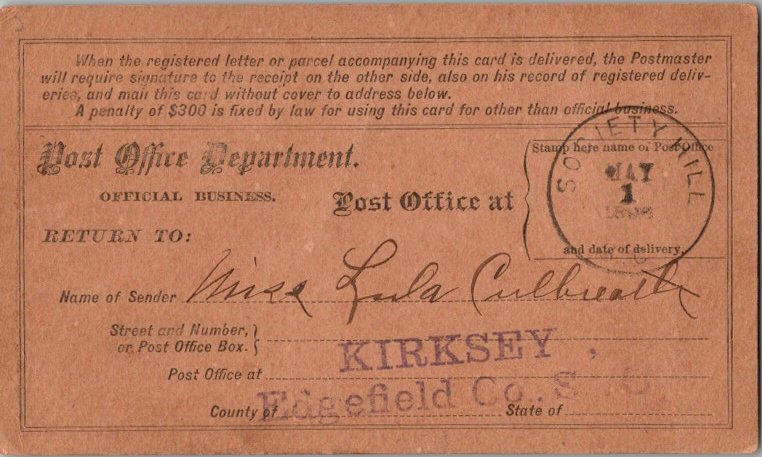 When the registered letter or parcel accompanying this card is delivered, the Postmaster
will require signature to the receipt on the other side, also on his record of registered deliv-
eries, and mail this card without cover to address below.
A penalty of $300 is fixed by law for using this card for other than official business.
Post Office Department.
OFFICIAL BUSINESS.
Post Office at
Stamp here name of Post Office
and date of delivery.
SOCIETY HILL
MAY
1
RETURN TO:
Name of Sender Miss Lula Culbreath
Street and Number,
or Post Office Box.
Post Office at KIRKSEY,
County of Edgefield Co., S. C.
State of